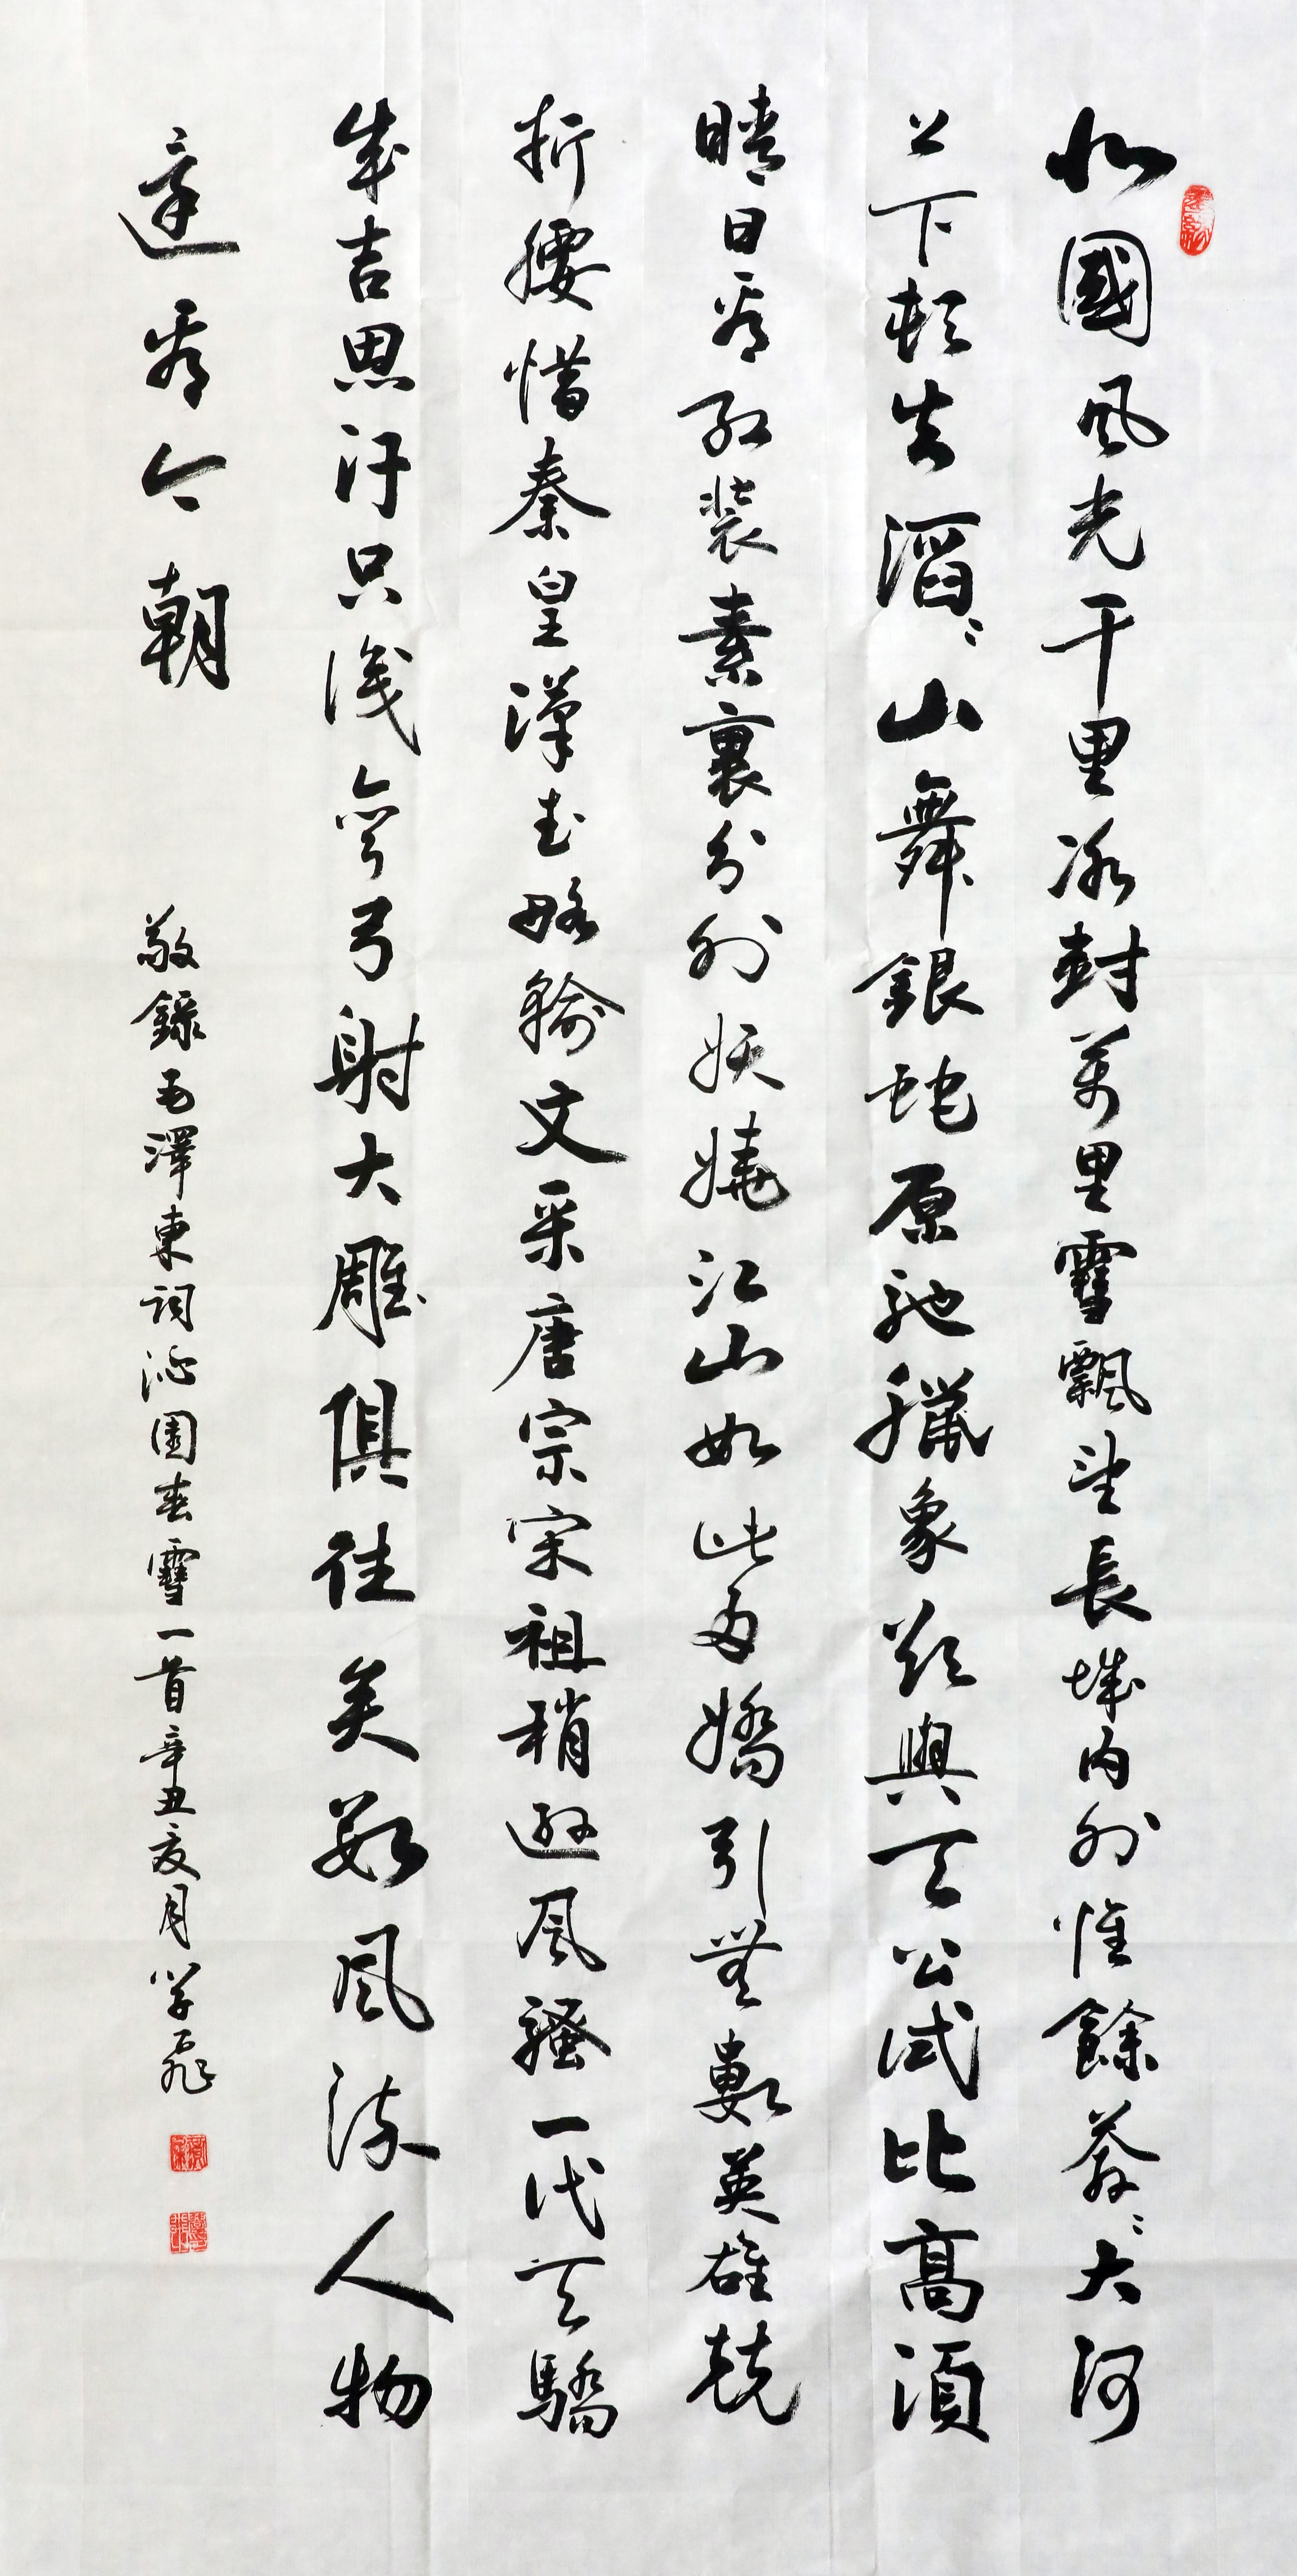 北國風光千里冰封萬里雪飄望長城内外惟餘莽々大河
上下頓失滔々山舞銀蛇原馳臘象欲與天公試比高須
晴日看紅裝素裹分外妖嬈江山如此多嬌引無數英雄競
折腰惜秦皇漢武略輸文采唐宗宋祖稍遜風騷一代天驕
成吉思汗只識彎弓射大雕俱往矣數風流人物
還看今朝
敬錄毛澤東詞沁園春雪一首辛丑夏月學飛